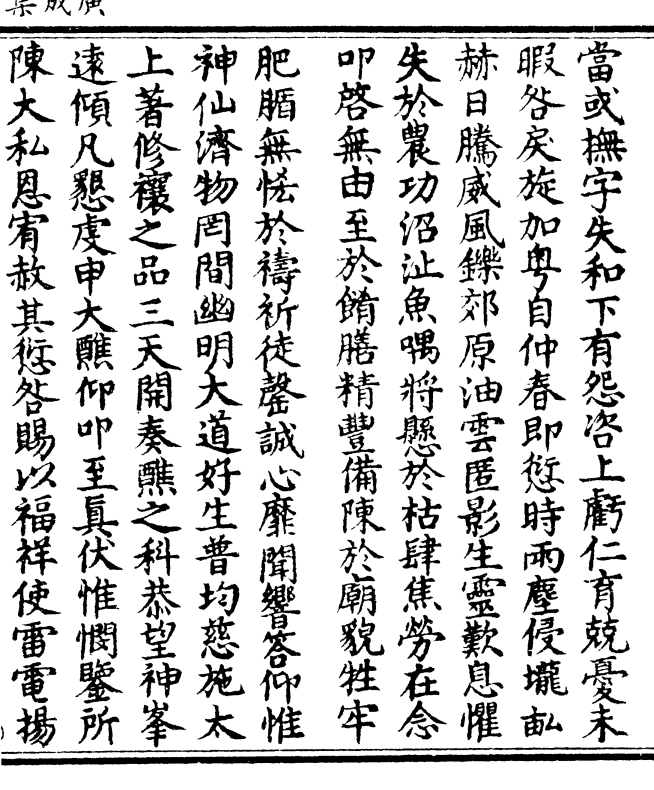 當或撫字失和下有怨咨上虧仁育兢憂未
暇咎戾旋加粤自仲春即愆時雨塵侵壠畝
赫日騰威風鑠郊原油雲匿影生靈歎息懼
失於農功沼沚魚喁將懸於枯肆焦勞在念
叩啓無由至於餚膳精豐備陳於廟貌牲牢
肥腯無恡於禱祈徒罄誠心靡聞響答仰惟
神仙濟物罔間幽明大道好生普均慈施太
上著修禳之品三天開奏醮之科恭望神峯
遠傾凡懇虔申大醮仰叩至眞伏惟憫鑒所
陳大私恩宥赦其愆咎賜以福祥使雷電揚